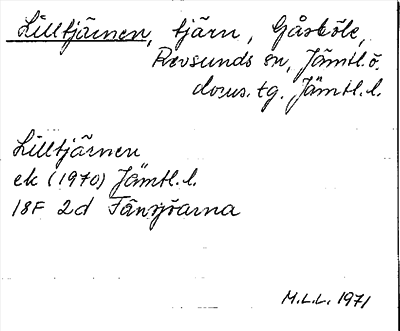 Lilltjärnen, tjärn, Gåsböle,
Revsunds sn, Jämtl.ö.
doms.tg. Jämtl.l.
Lilltjärnen
ek (1970) Jämtl.l.
18F 2d
M.L.L. 1971